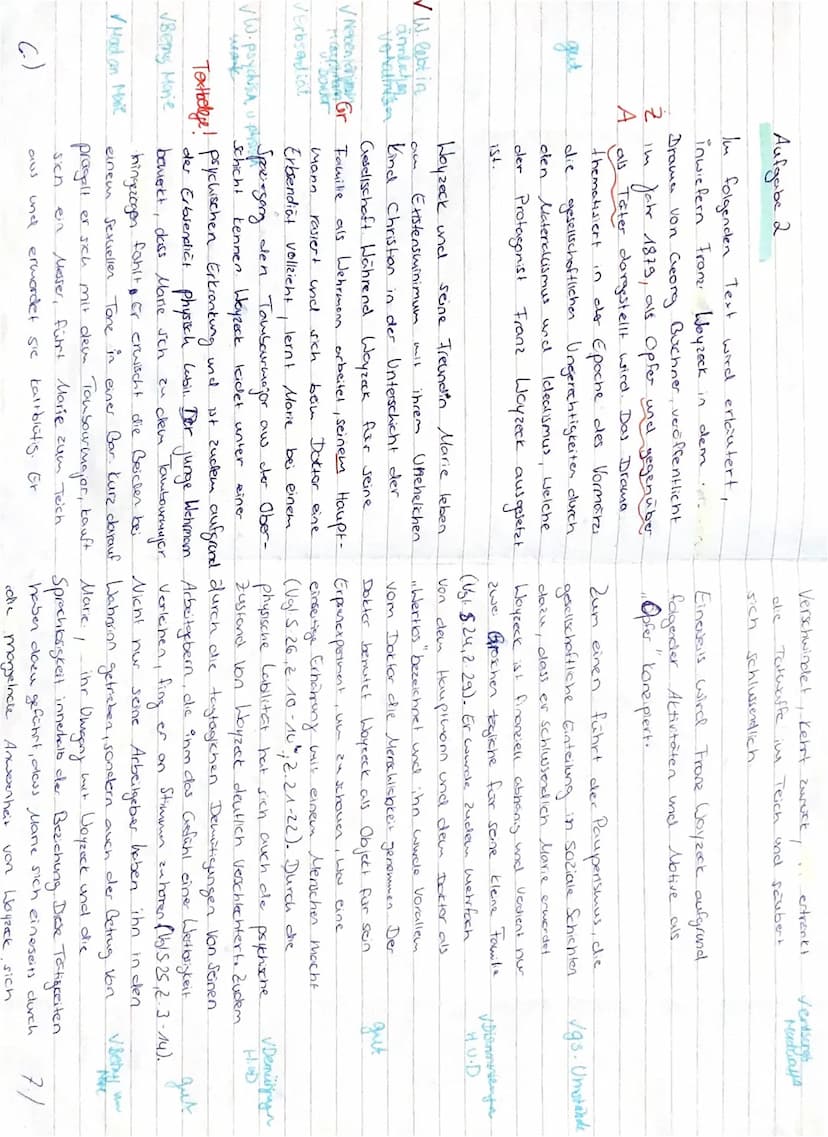 Aufgabe 2
Im folgenden Text wird erläutert,
inwiefern Franz Woyzeck in dem
Drama von Georg Büchner, veröffentlicht
Z im Jahr 1879, als Opfer und gegenüber
A als Täter dargestellt wird. Das Drama
thematisiert in der Epoche des Vormärz
gut
die gesellschaftlichen Ungerechtigkeiten durch
den Materialismus und Idealismus, welche
der Protagonist Franz Woyzeck ausgesetzt
ist.
Woyzeck und seine Freundin Marie leben
√ W. lebt in
ärmlichen
Verhältnissen
am Existensminimum mit ihrem Unehelichen
Kind Christian in der Unterschicht der
Gesellschaft Während Woyzeck für seine
Gr Familie als Wehrmann arbeitet, seinem Haupt-
mann rasiert und sich beim Doktor eine
√ Erbsendiät
Erbsendiät vollzieht, lernt Marie bei einem
Spaziergang den Tambourmajor aus der Ober-
√ W. psychisch u physisch
schicht kennen Woyzeck leidet unter einer
psychischen Erkrankung und ist zudem aufgrund
Textbelege!
der Erbsendiät physisch labil Der junge Wehrmann
√ Bezng Marie
bemerkt, dass Marie sich zu dem Tambourmajor
hingezogen fühlt. Er erwischt die Beiden bei
√ Mord an Marie
einem sexuellen Tanz in einer Bar. Kurz darauf
prügelt er sich mit dem Tambourmajor, kauft
sich ein Messer, führt Marie zum Teich
aus und ermordet sie kaltblütig. Er
6.)
verschwindet, kehrt zurück, ertränkt
√ entsorgt
die Tatwaffe im Teich und säubert
sich schlussendlich
Einerseits wird Franz Woyzeck aufgrund
folgender Aktivitäten und Motive als
"Opfer" konzipiert.
Zum einen führt der Pauperismus, die
gesellschaftliche Einteilung in soziale Schichten
√ gs. Umstände
dazu, dass er schlussendlich Marie ermordet
Woyzeck ist finanziell abhängig und verdient nur
zwei Groschen tägliche für seine kleine Familie
(Vgl. S 24, Z. 29). Er wurde zudem mehrfach
H.U.D
von dem Hauptmann und dem Doktor als
"Wertlos" bezeichnet und ihn wurde vorallem
vom Doktor die Menschlichkeit genommen Der
gut
Doktor benutzt Woyzeck als Objekt für sein
Erbsenexperiment, um zu schauen, was eine
einseitige Ernährung mit einem Menschen macht
(Vgl S 26, Z 10-16, Z. 21-22). Durch die
√ Demütigungen
physische Labilität hat sich auch die psychische
Zustand von Woyzeck deutlich verschlechtert. Zudem
durch die tagtäglichen Demütigungen von seinen
Arbeitgebern, die ihm das Gefühl einer Wertlosigkeit
gut
verleihen, fing er an Stimmen zu hören (Vgl S 25, Z. 3-14).
Nicht nur seine Arbeitgeber haben ihn in den
Wahnsinn getrieben, sondern auch der Betrug von
Marie, ihr Umgang mit Woyzeck und die
Sprachlosigkeit innerhalb der Beziehung. Diese Tätigkeiten
haben dazu geführt, dass Marie sich einerseits durch
die mangelnde Anwesenheit von Woyzeck, sich
7.)